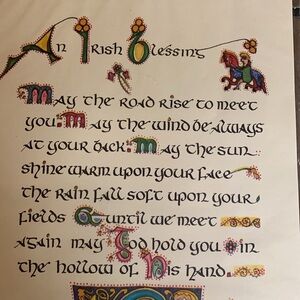 An Irish Blessing
May the road rise to meet
you. May the wind be always
at your back. May the sun
shine warm upon your face
the rain fall soft upon your
fields & until we meet
again may God hold you in
the hollow of his hand.